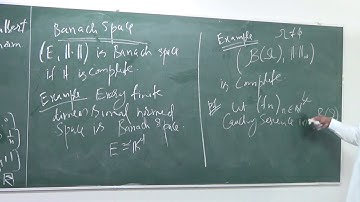 lbert
Banach Space
(E, ||·||) is Banach space
if it is complete.
Example Every finite
dimensional normed
space is Banach space.
E ≅ K^d
Example Ω ≠ ϕ
(B(Ω), ||·||∞)
is complete.
Let (fn)n∈ℕ
Cauchy sequence in B(Ω)